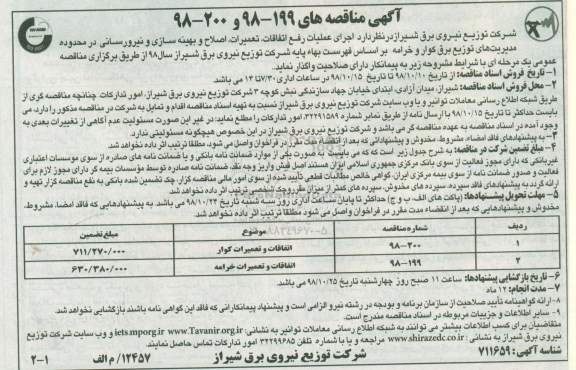 آگهی مناقصه های ۱۹۹-۹۸ و ۲۰۰-۹۸
شرکت توزیع نیروی برق شیراز در نظر دارد اجرای عملیات رفع اتفاقات، تعمیرات، اصلاح و بهینه سازی و نیرورسانی در محدوده
مدیریت‌های توزیع برق کوار و خرامه بر اساس فهرست بهاء پایه شرکت توزیع نیروی برق شیراز سال ۹۸ از طریق برگزاری مناقصه
عمومی یک مرحله ای با شرایط مشروحه زیر به پیمانکار دارای صلاحیت واگذار نماید.
۱- تاریخ فروش اسناد مناقصه: از تاریخ ۹۸/۱۰/۱۰ تا تاریخ ۹۸/۱۰/۱۵ در ساعات اداری ۷/۳۰ تا ۱۴ می باشد.
۲- محل فروش اسناد مناقصه: شیراز، میدان آزادی، ابتدای خیابان جهاد سازندگی نبش کوچه ۳ شرکت توزیع نیروی برق شیراز، امور تدارکات. چنانچه مناقصه گری از
طریق شبکه اطلاع رسانی معاملات توانیر و یا وب سایت شرکت توزیع نیروی برق شیراز نسبت به تهیه اسناد مناقصه اقدام و تمایل به شرکت در مناقصه مذکور را دارد، می
بایست حداکثر تا تاریخ ۹۸/۱۰/۱۵ با ارسال نامه از طریق نمابر شماره ۳۲۲۹۱۵۸۹ امور تدارکات را مطلع نماید؛ در غیر این صورت مسئولیت عدم آگاهی از تغییرات بعدی به
وجود آمده در اسناد مناقصه به عهده مناقصه گر می باشد و شرکت توزیع نیروی برق شیراز در این خصوص هیچگونه مسئولیتی ندارد.
۳- به پیشنهادهای فاقد امضاء، مشروط، مخدوش و پیشنهاداتی که بعد از انقضاء مدت مقرر در فراخوان واصل می شود، مطلقا ترتیب اثر داده نخواهد شد.
۴- مبلغ تضمین شرکت در مناقصه: به شرح جدول زیر است که می بایست به صورت یکی از موارد ضمانت نامه بانکی و یا ضمانت نامه های صادره از سوی موسسات اعتباری
غیربانکی که دارای مجوز فعالیت از سوی بانک مرکزی جمهوری اسلامی ایران هستند، اصل فیش واریز وجه نقد، ضمانت نامه صادره توسط مؤسسات بیمه گر دارای مجوز لازم برای
فعالیت و صدور ضمانت نامه از سوی بیمه مرکزی ایران، گواهی خالص مطالبات قطعی تأیید شده از سوی امور مالی مناقصه گزار، چک تضمین شده بانکی به نفع مناقصه گزار تهیه و
ارائه گردد. به پیشنهادهای فاقد سپرده، سپرده های مخدوش، سپرده های کمتر از میزان مقرر و چک شخصی ترتیب اثر داده نخواهد شد.
۵- مهلت تحویل پیشنهادها: (پاکت های الف، ب و ج) حداکثر تا پایان ساعت اداری روز سه شنبه تاریخ ۹۸/۱۰/۲۴ می باشد. به پیشنهادهایی که فاقد امضا، مشروط،
مخدوش و پیشنهادهایی که بعد از انقضاء مدت مقرر در فراخوان واصل می شود مطلقا ترتیب اثر داده نخواهد شد.
ردیف شماره مناقصه موضوع مبلغ تضمین
۱ ۹۸-۲۰۰ اتفاقات و تعمیرات کوار ۷۱۱/۲۷۰/۰۰۰
۲ ۹۸-۱۹۹ اتفاقات و تعمیرات خرامه ۶۳۰/۳۸۰/۰۰۰
۶- تاریخ بازگشایی پیشنهادها: ساعت ۱۱ صبح روز چهارشنبه تاریخ ۹۸/۱۰/۲۵ می باشد.
۷- مدت انجام: ۱۲ ماه
۸- ارائه گواهینامه تأیید صلاحیت از سازمان برنامه و بودجه در رشته نیرو الزامی است و پیشنهاد پیمانکارانی که فاقد این گواهی نامه باشند بازگشایی نخواهد شد.
۹- سایر اطلاعات و جزییات مربوطه در اسناد مناقصه مندرج است.
متقاضیان برای کسب اطلاعات بیشتر می توانند به شبکه اطلاع رسانی معاملات توانیر به نشانی: www.Tavanir.org.ir یا iets.mporg.ir و وب سایت شرکت توزیع
نیروی برق شیراز به نشانی: www.shirazedc.co.ir مراجعه و یا با شماره تلفن ۳۲۲۹۹۶۸۵ امور تدارکات تماس حاصل نمایند.
شناسه آگهی: ۷۱۱۶۵۹ شرکت توزیع نیروی برق شیراز ۱۲۴۵۷/م الف ۲-۱